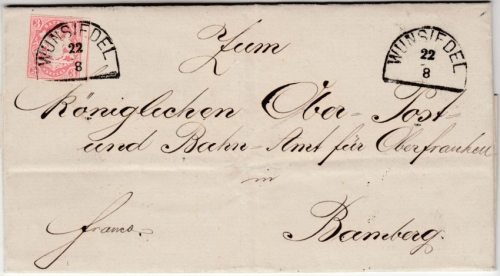 3
WUNSIEDEL
22
8
WUNSIEDEL
22
8
Zum
Königlichen Ober-Post-
und Bahn-Amt für Oberfranken
in
franco.
Bamberg.